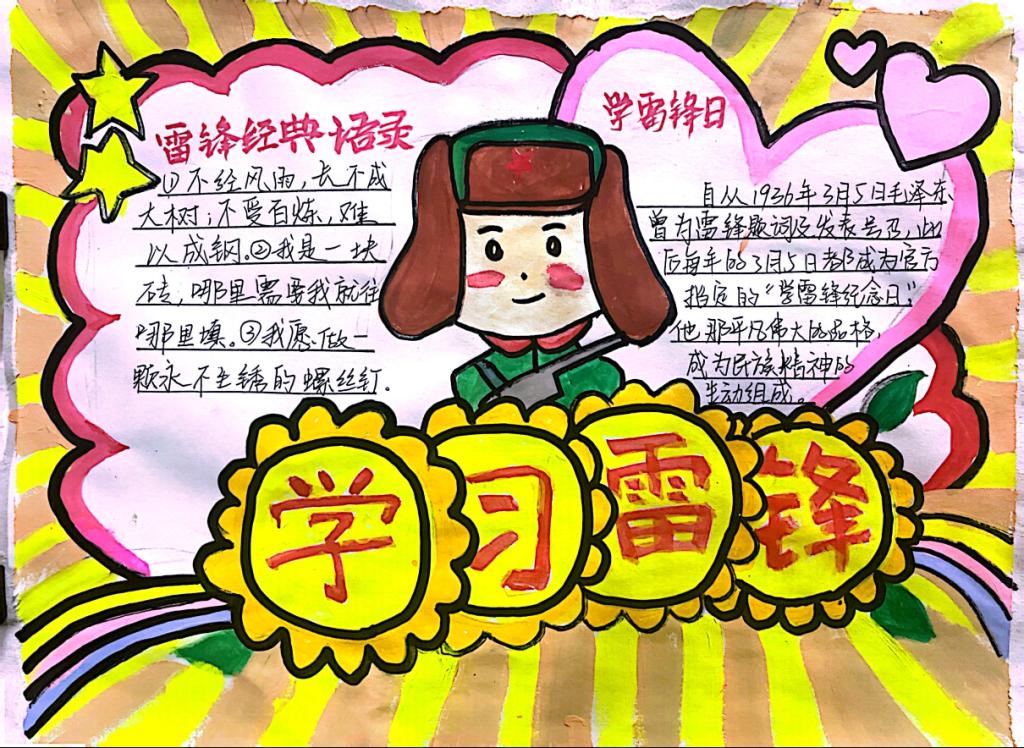 雷锋经典语录
①不经风雨，长不成
大树；不受百炼，难
以成钢。②我是一块
砖，哪里需要我就往
哪里填。③我愿做一
颗永不生锈的螺丝钉.
学雷锋日
自从1936年3月5日毛泽东
曾为雷锋题词及发表号召，此
后每年的3月5日都成为官方
指定的“学雷锋纪念日”
他那平凡伟大的品格，
成为民族精神的
生动组成。
学习雷锋